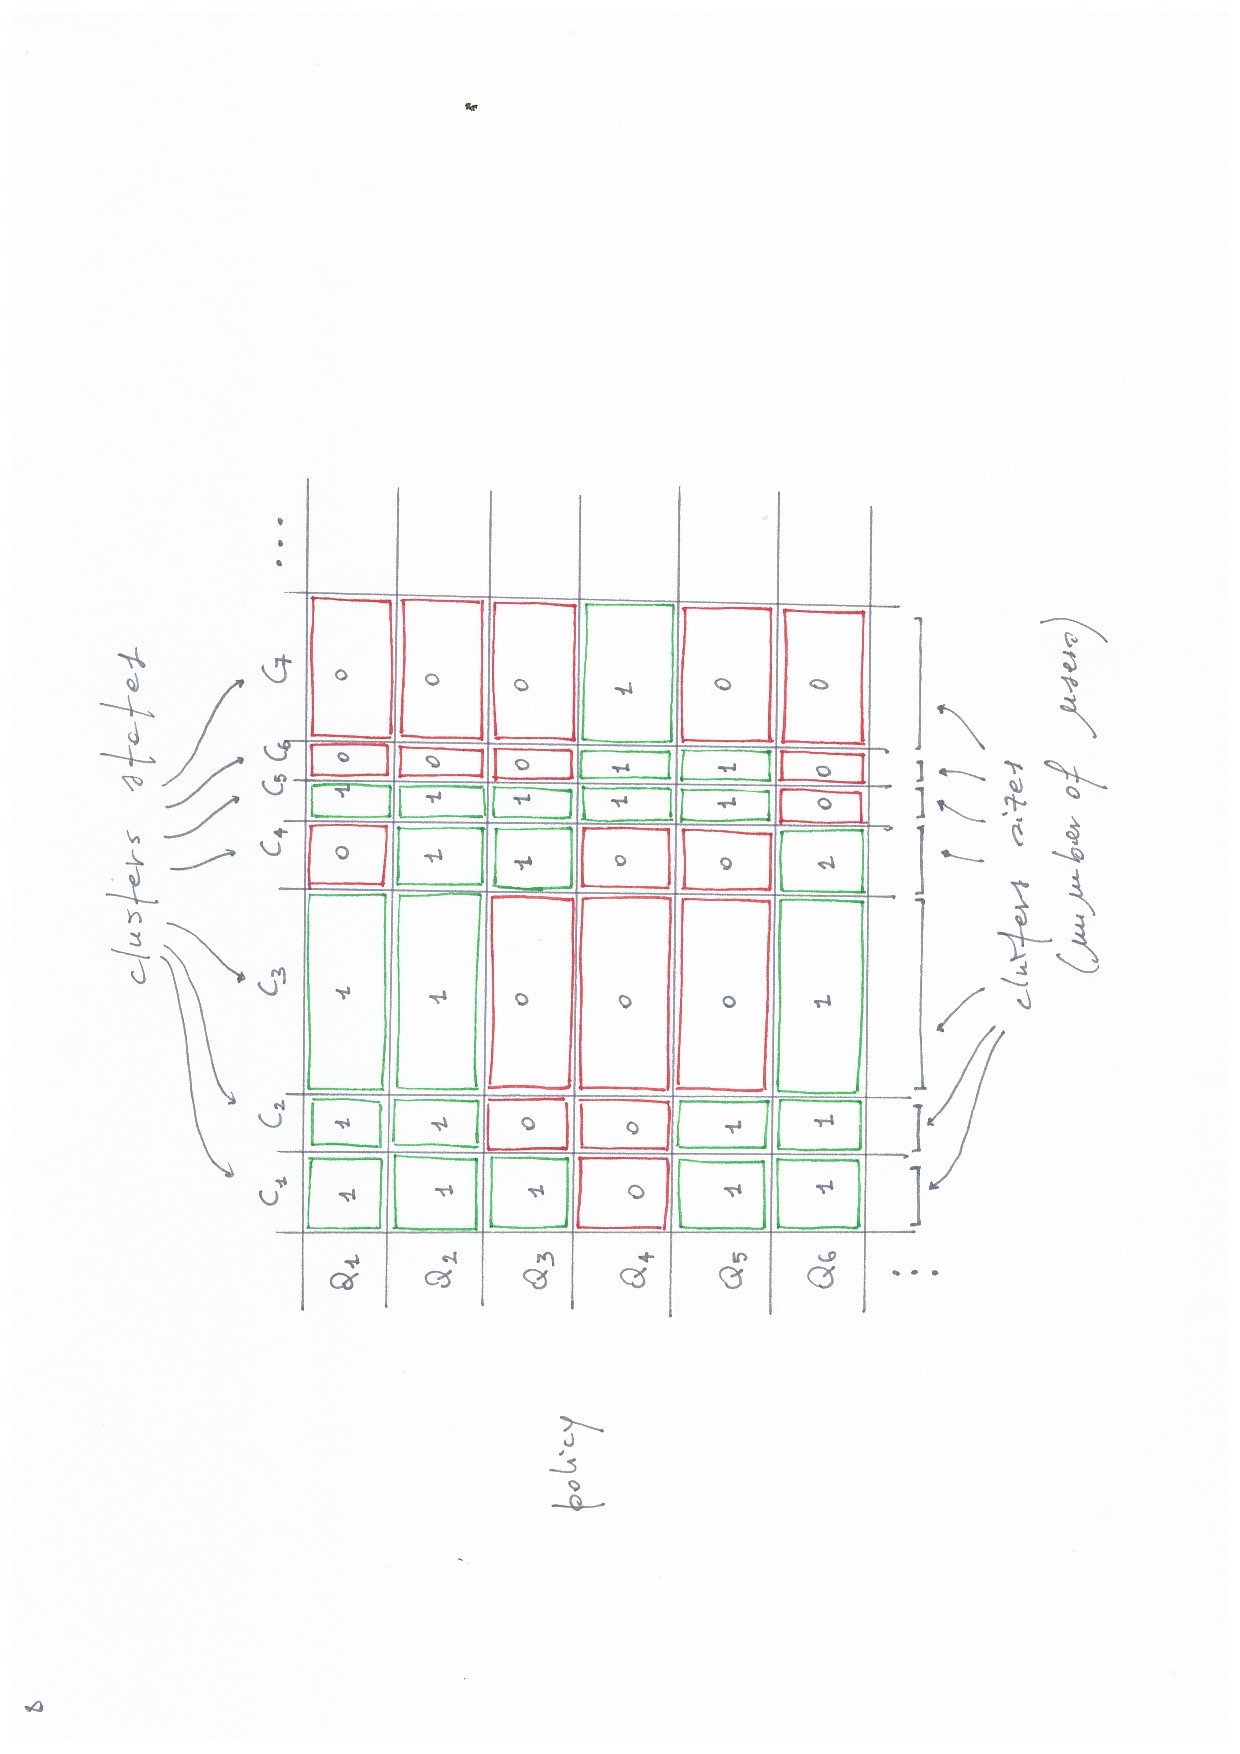 clusters states
C1 C2 C3 C4 C5 C6 C7 ...
Q1 1 1 1 0 1 0 0
Q2 1 1 1 1 1 0 0
Q3 1 0 0 1 1 0 0
Q4 0 0 0 0 1 1 1
Q5 1 1 0 0 1 1 0
Q6 1 1 1 1 0 0 0
...
policy
clusters sizes
(number of users)
8